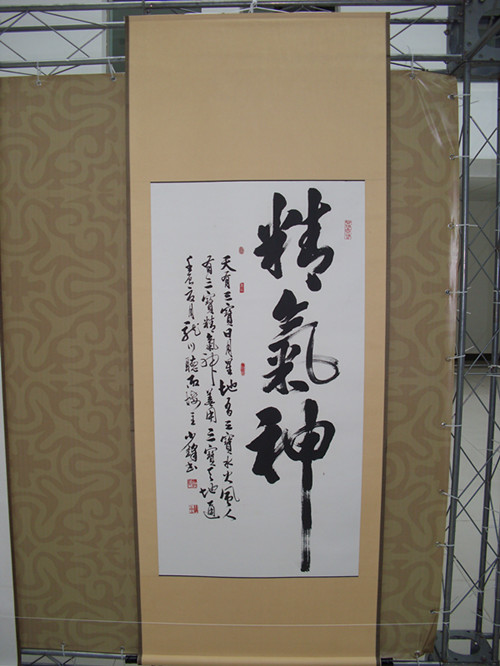 精氣神
天有三寶日月星地有三寶水火風人
有三寶精氣神善用三寶天地通
壬辰夏月龍川聽